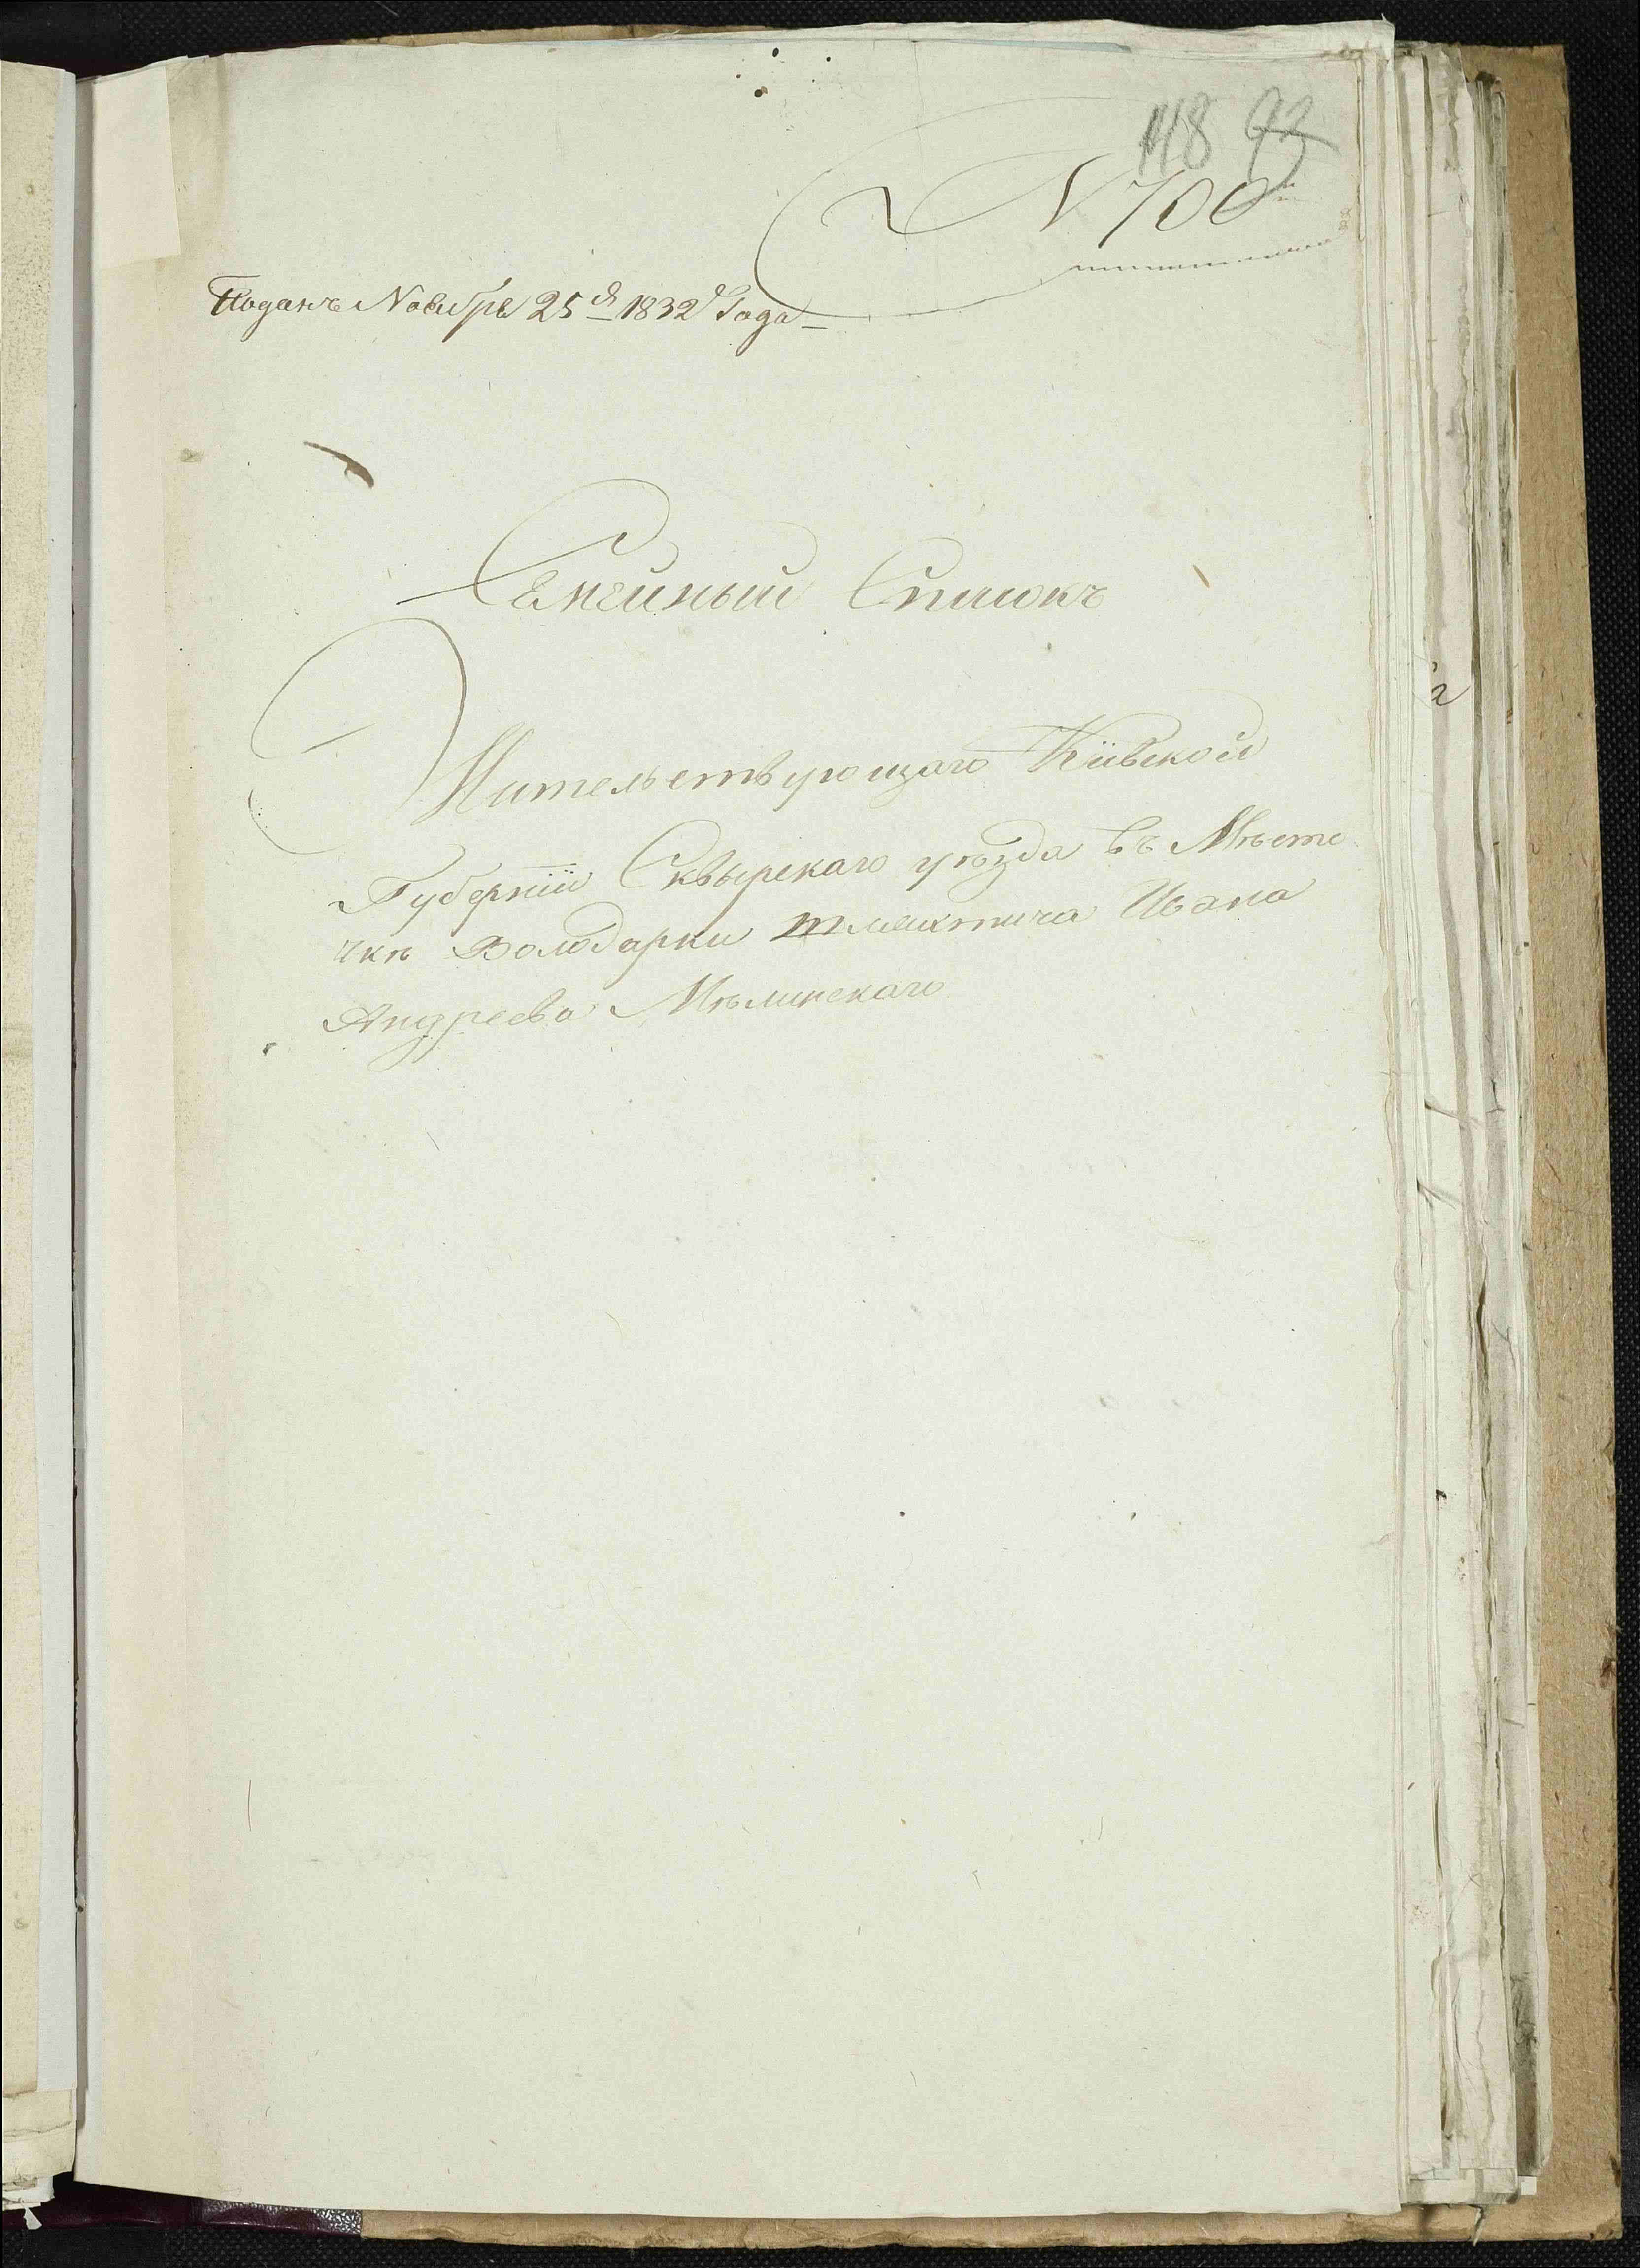 148 92
N 700
Поданъ Ноября 25 д 1832 Года
Семейный Списокъ
Жительствующаго Кіевской
Губерніи Сквырскаго уѣзда въ Мѣсте
чкѣ Володарки шляхтича Ивана
Андреева Мѣлинскаго
2